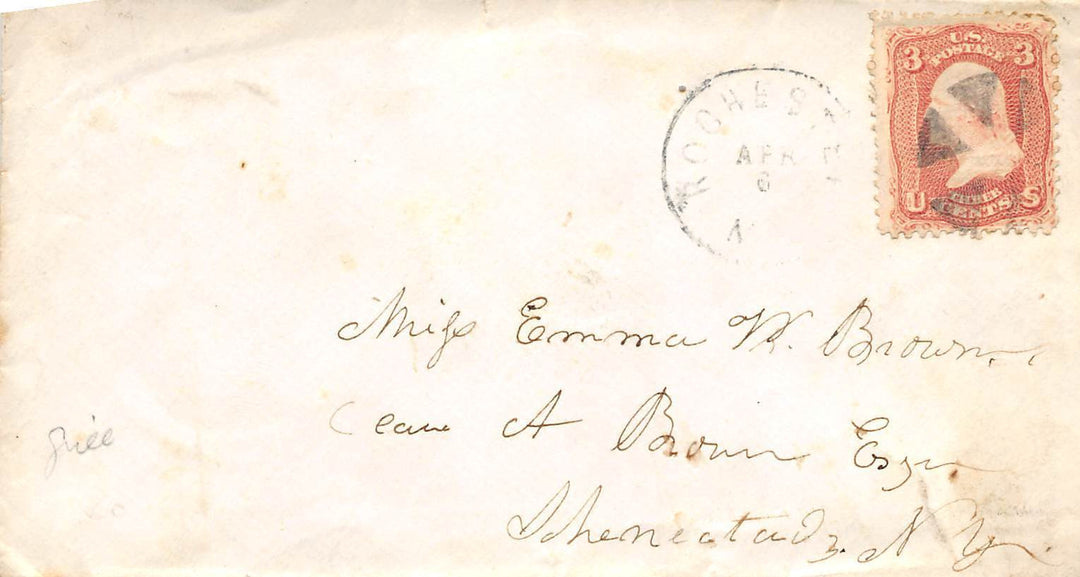 3 U.S. POSTAGE 3
U THREE CENTS S
ROCHEST
APR
6
N
Miss Emma W. Brown.
Care A Brown Esqr
Shenectady. N Y.